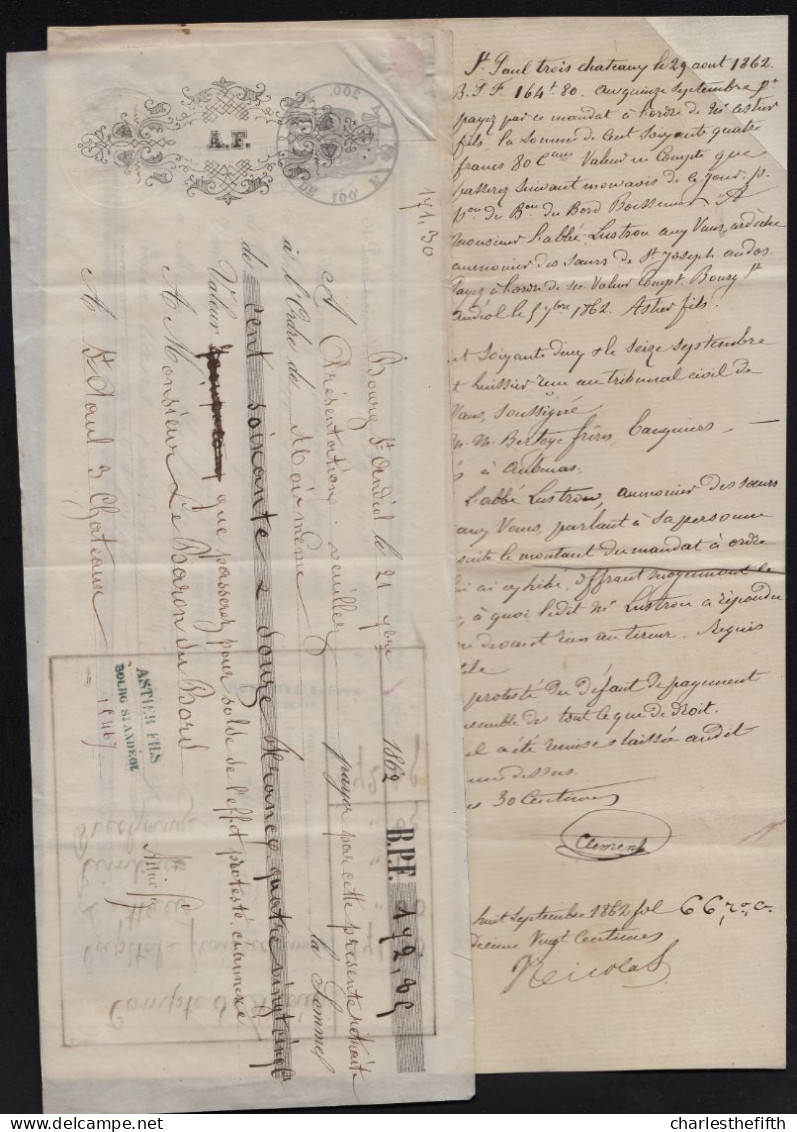 A.F.
171,30
Bourg St Andéol le 21 7bre 1862 B.P.F. 172,85
A Présentation veuillez payer par cette présente retraite
à l'Ordre de Moi même la Somme
de cent soixante & douze francs quatre vingt cinq c
Valeur que passerez pour solde de l'effet protesté, ci annexé
A Monsieur Le Baron du Bord
A St Paul 3 Chateaux
ASTIER FILS
BOURG St ANDÉOL
Compte de
St Paul trois chateaux le 29 aout 1862.
B.P.F. 164f 80. au quinze Septembre pt
payez par ce mandat à l'ordre de Mr Astier
fils la Somme de Cent Soixante quatre
francs 80 Cmes Valeur en Compte que
passerez Suivant mon avis de ce jour. p.
pon de Bon du Bord Boissemn A
Monsieur L'abbé Lustrou aux Vans, ardèche
aumonier des Sœurs de St Joseph. au dos.
Payez à l'ordre de Valeur Compt Bourg St
andéol le 5 7bre 1862. Astier fils.
nt Soixante deux & le seize septembre
t huissier reçu au tribunal civil de
Vans, soussigné
M. M. Bertoye frères, banquiers
s à Aubenas.
L'abbé Lustrou, aumonier des Sœurs
aux Vans, parlant à sa personne
suite le montant du mandat à ordre
lui ai exhibé, offrant moyennant le
, à quoi ledit Mr Lustrou a répondu
ne devant rien au tireur. Requis
protesté du défaut de payement
ensemble de tout ce que de droit.
l a été remise & laissée audit
me dessus.
s 30 Centimes
Clement
huit Septembre 1862 fol 66, ro c.
decime Vingt Centimes
Nicolas